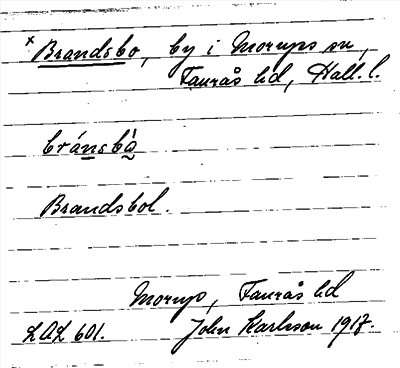 * Brandsbo, by i Morups sn,
Faurås hd, Hall. l.
bránsbò̰
Brandsbol.
Morup, Faurås hd
LAL 601. John Karlsson 1917.